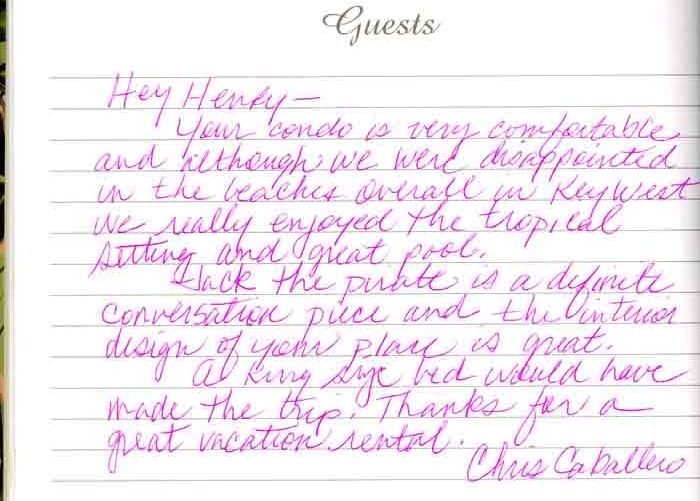 Guests
Hey Henry—
Your condo is very comfortable
and although we were disappointed
in the beaches overall in Key West
we really enjoyed the tropical
setting and great pool.
Jack the pirate is a definite
conversation piece and the interior
design of your place is great.
A king size bed would have
made the trip. Thanks for a
great vacation rental.
Chris Caballero